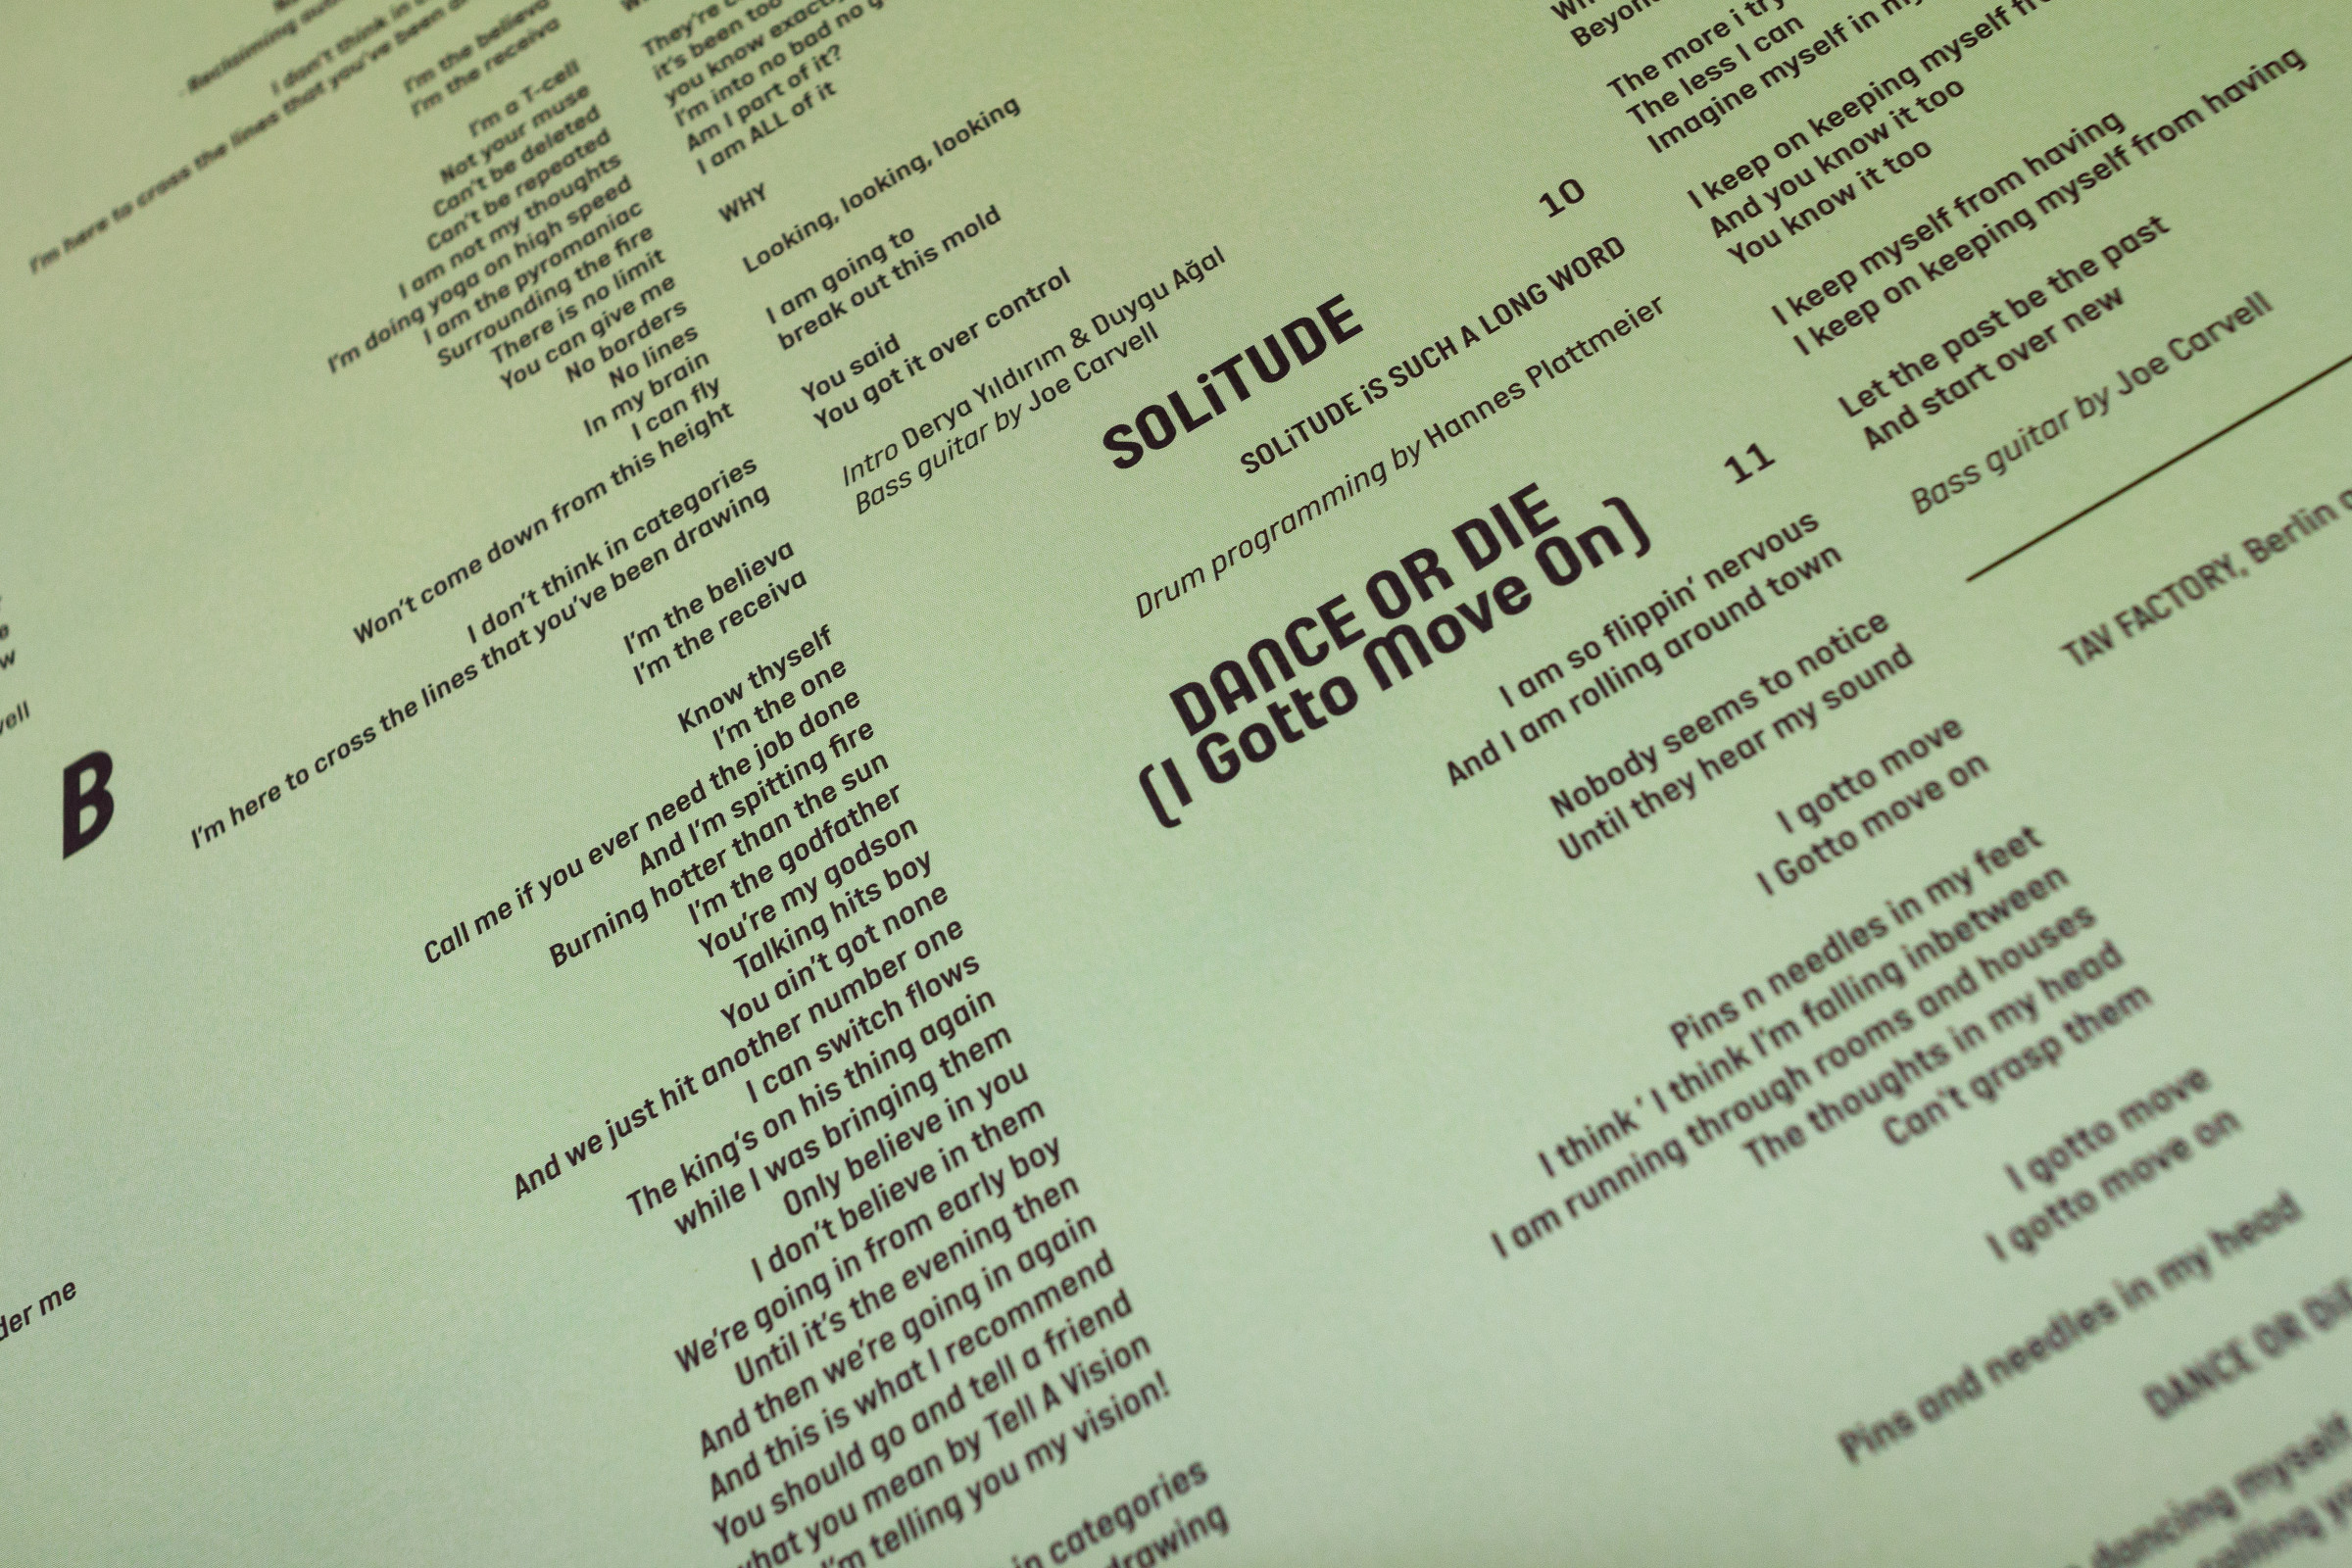 I don't think in
I'm here to cross the lines that you've been
I'm the believa
I'm the receiva
I'm a T-cell
Not your muse
Can't be deleted
Can't be repeated
I am not my thoughts
I'm doing yoga on high speed
I am the pyromaniac
Surrounding the fire
There is no limit
You can give me
No borders
No lines
In my brain
I can fly
Won't come down from this height
I don't think in categories
I'm here to cross the lines that you've been drawing
I'm the believa
I'm the receiva
Know thyself
I'm the one
Call me if you ever need the job done
And I'm spitting fire
Burning hotter than the sun
I'm the godfather
You're my godson
Talking hits boy
You ain't got none
And we just hit another number one
I can switch flows
The king's on his thing again
while I was bringing them
Only believe in you
I don't believe in them
We're going in from early boy
Until it's the evening then
And then we're going in again
And this is what I recommend
You should go and tell a friend
what you mean by Tell A Vision
I'm telling you my vision!
in categories
drawing
B
me
They're
it's been too
you know exactly
I'm into no bad no
Am I part of it?
I am ALL of it
WHY
Looking, looking, looking
I am going to
break out this mold
You said
You got it over control
Intro Derya Yıldırım & Duygu Ağal
Bass guitar by Joe Carvell
SOLiTUDE
10
SOLiTUDE iS SUCH A LONG WORD
Drum programming by Hannes Plattmeier
DANCE OR DIE
(I Gotto Move On)
11
I am so flippin' nervous
And I am rolling around town
Nobody seems to notice
Until they hear my sound
I gotto move
I Gotto move on
Pins n needles in my feet
I think ' I think I'm falling inbetween
I am running through rooms and houses
The thoughts in my head
Can't grasp them
I gotto move
I gotto move on
Pins and needles in my head
DANCE OR DiE
dancing myself
Beyond
The more i try
The less I can
Imagine myself in my
I keep on keeping myself
And you know it too
You know it too
I keep myself from having
I keep on keeping myself from having
Let the past be the past
And start over new
Bass guitar by Joe Carvell
TAV FACTORY, Berlin